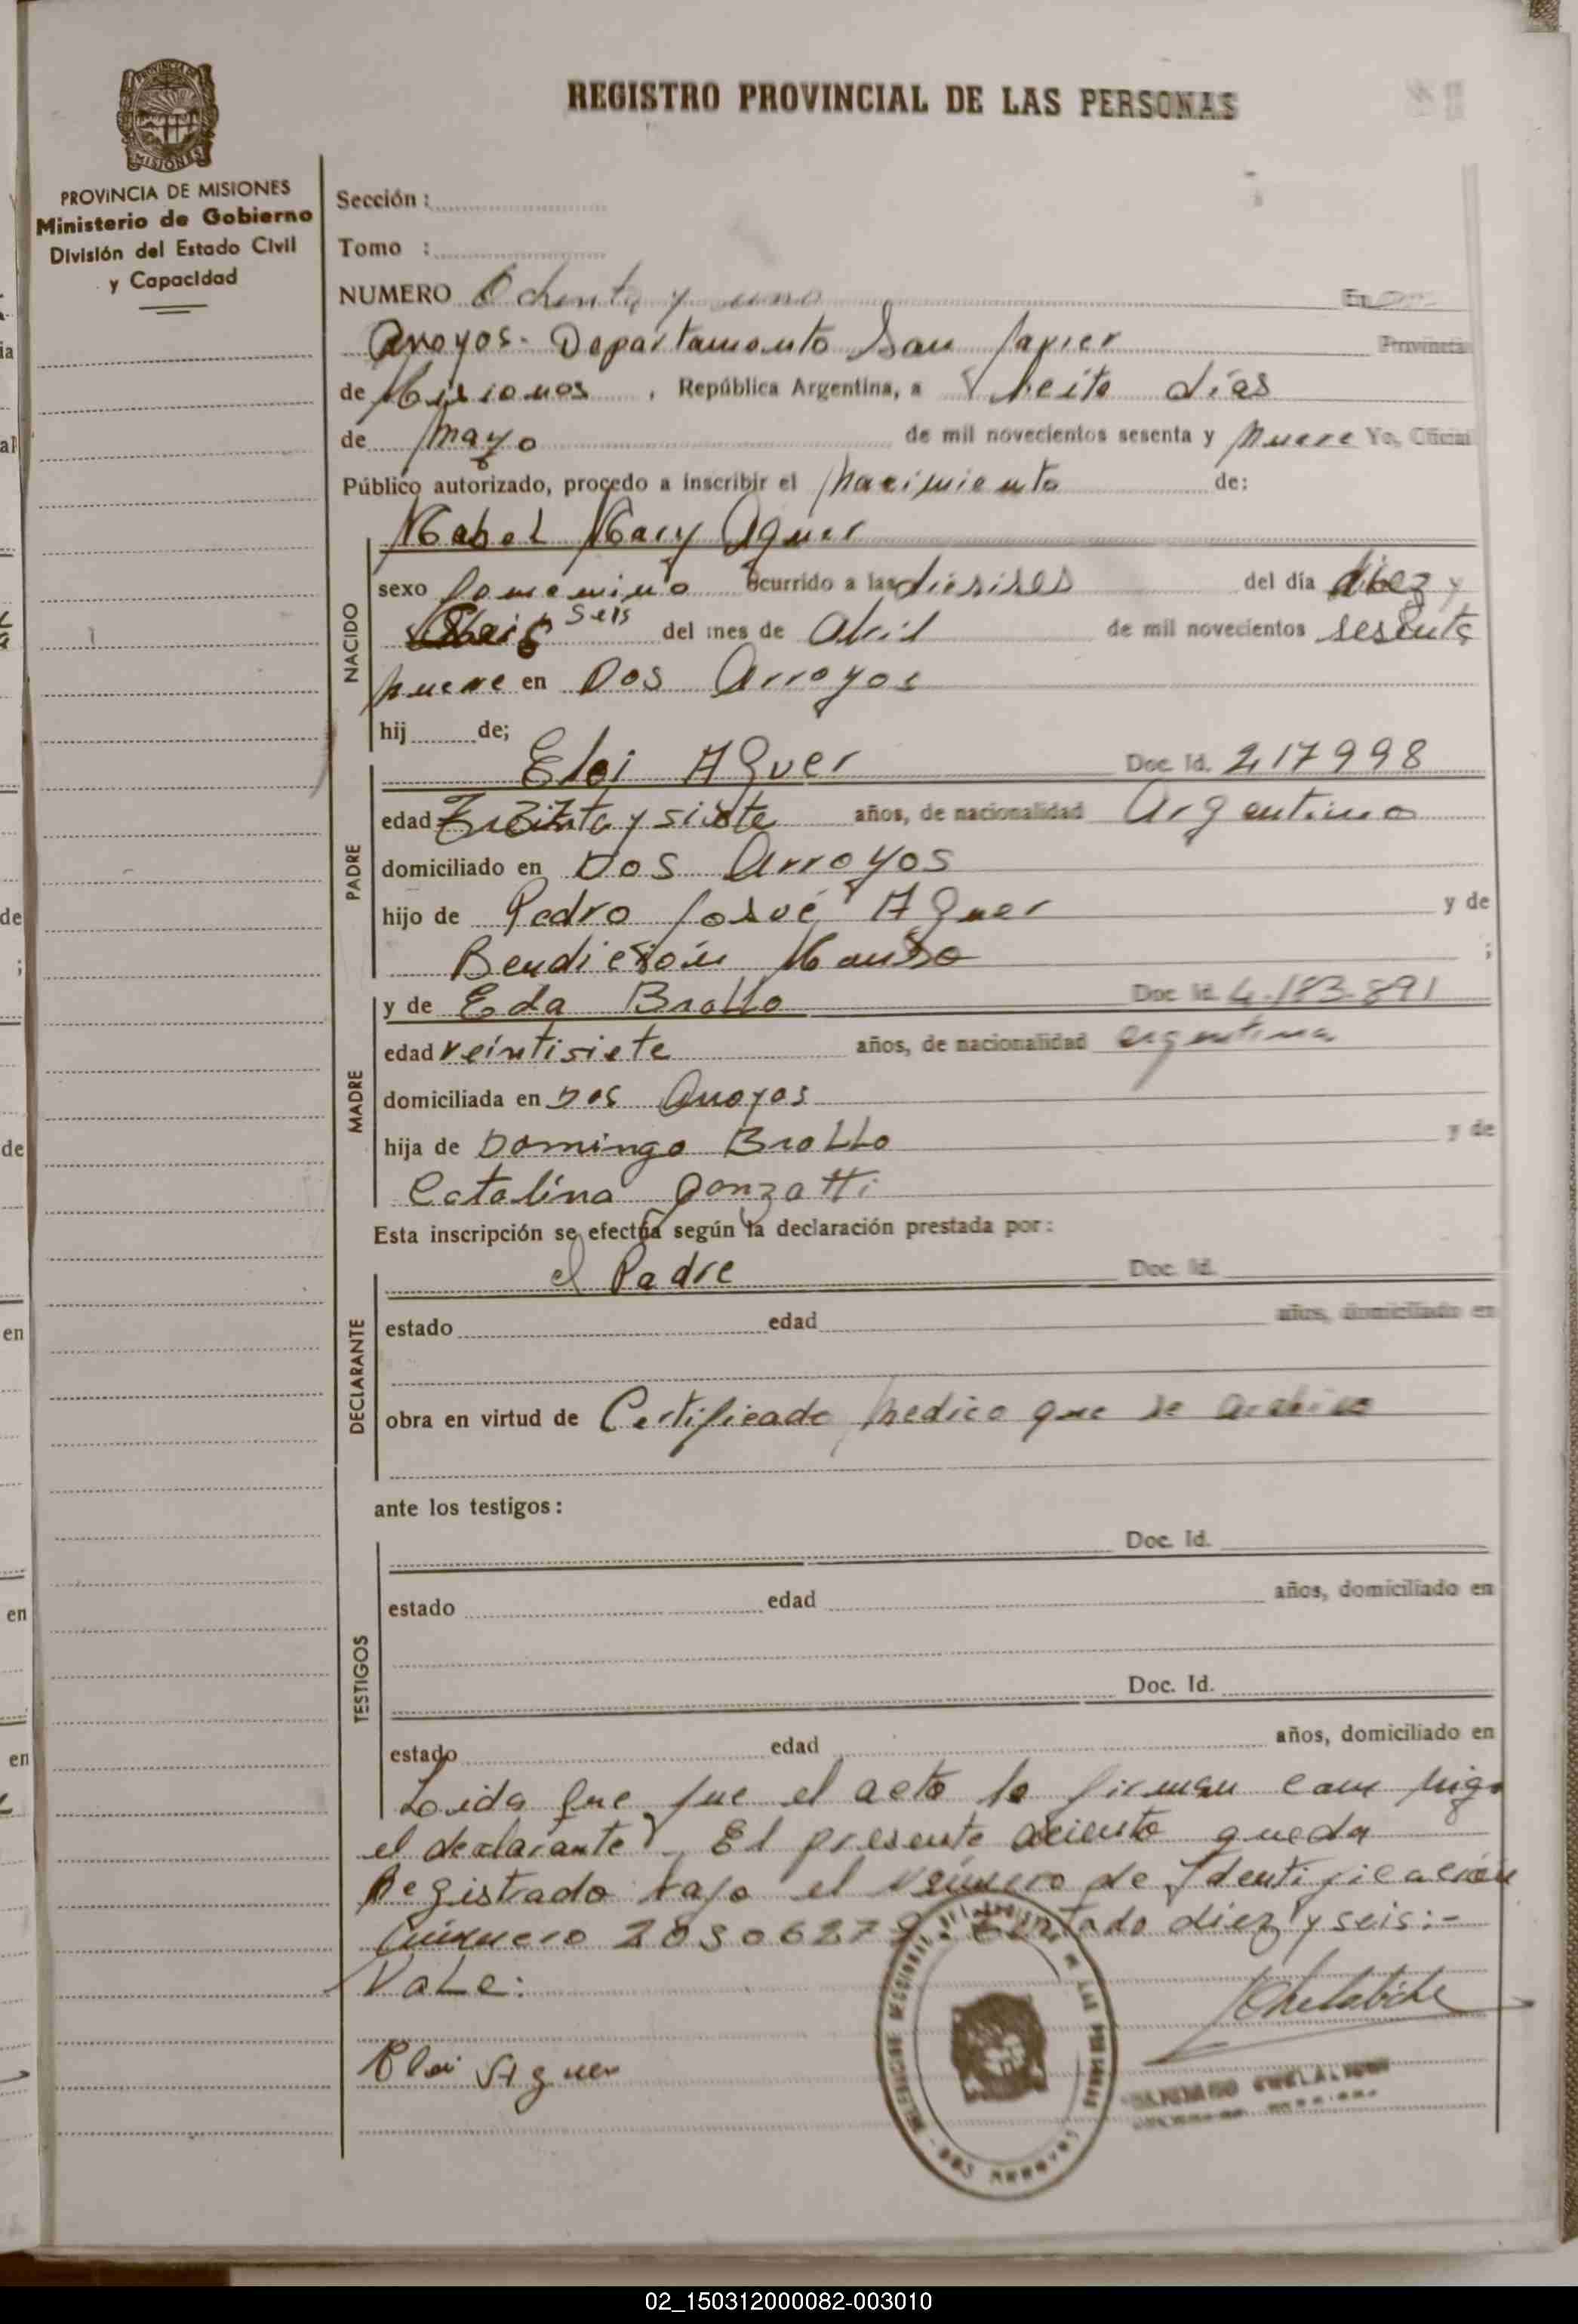 REGISTRO PROVINCIAL DE LAS PERSONAS
PROVINCIA DE MISIONES
MISIONES
PROVINCIA DE MISIONES
Ministerio de Gobierno
División del Estado Civil
y Capacidad
Sección :
Tomo :
NUMERO Ochenta y uno En Dos
Arroyos - Departamento San Javier Provincia
de Misiones , República Argentina, a días
de Mayo de mil novecientos sesenta y nueve Yo, Oficial
Público autorizado, procedo a inscribir el nacimiento de:
NACIDO
Mabel Mary Aguer
sexo femenino ocurrido a las del día diez y
seis del mes de Abril de mil novecientos sesenta
nueve en Dos Arroyos
hij de;
PADRE
Eloi Aguer Doc. Id. 217998
edad Treinta y siete años, de nacionalidad Argentino
domiciliado en Dos Arroyos
hijo de Pedro Josué Aguer y de
Bendición ;
MADRE
y de Eda Brollo Doc. Id. 4.183.891
edad veintisiete años, de nacionalidad argentina
domiciliada en Dos Arroyos
hija de Domingo Brollo y de
Catalina Gonzatti
Esta inscripción se efectúa según la declaración prestada por :
DECLARANTE
el Padre Doc. Id.
estado edad años, domiciliado en
obra en virtud de Certificado Medico que se archiva
ante los testigos :
TESTIGOS
Doc. Id.
estado edad años, domiciliado en
Doc. Id.
estado edad años, domiciliado en
Leida que fue el acto lo firman con migo
el declarante . El presente asiento queda
Registrado bajo el Número de Identificación
Número diez y seis :-
Vale :
Eloi Aguer
DOS ARROYOS
02_150312000082-003010